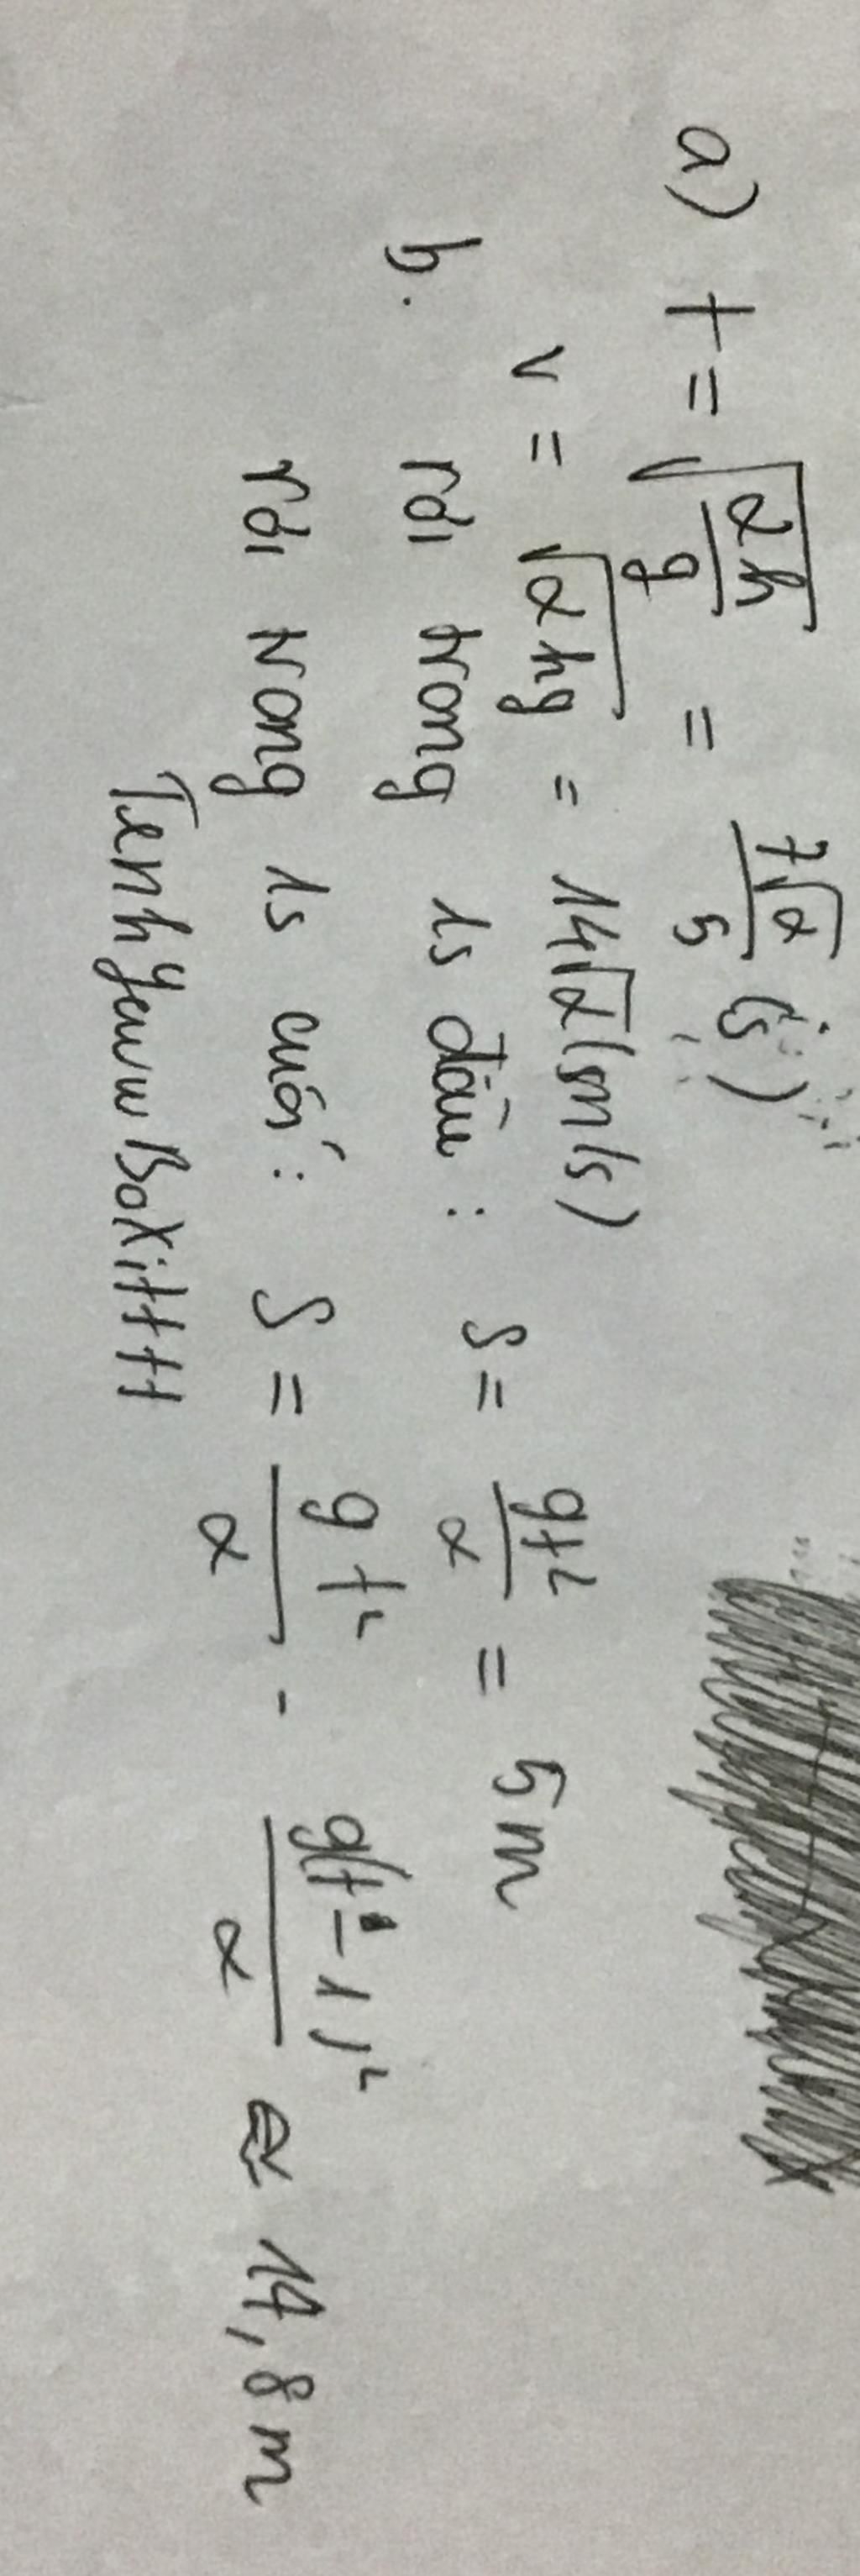 a) t = √(2h/g) = 7√2/5 (s)
v = √(2hg) = 14√2 (m/s)
b. rơi trong 1s đầu : S = gt²/2 = 5m
rơi trong 1s cuối : S = gt²/2 - g(t-1)²/2 ≈ 14,8m